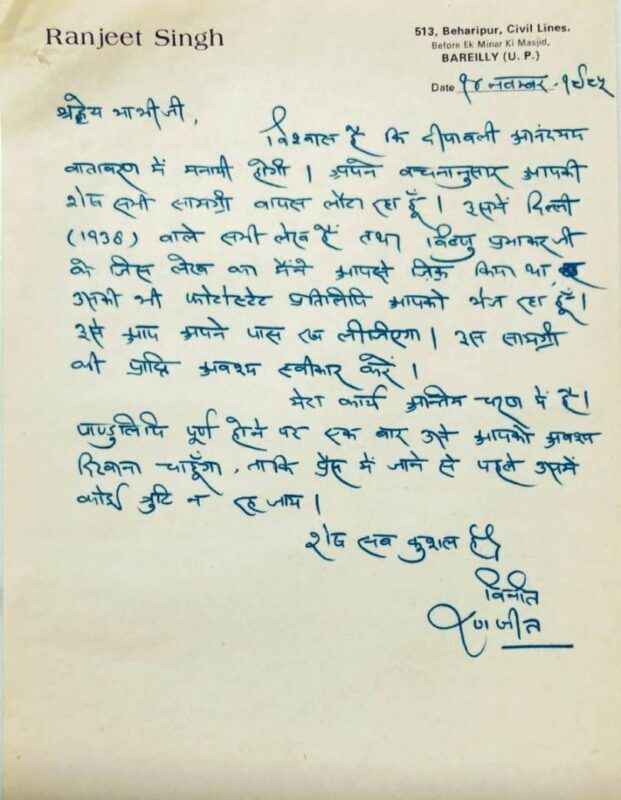 Ranjeet Singh
513, Beharipur, Civil Lines,
Before Ek Minar Ki Masjid,
BAREILLY (U. P.)
Date १४ नवम्बर, १९८५
श्रद्धेय भाभीजी,
विश्वास है कि दीपावली आनंदमय
वातावरण में मनायी होगी। अपने वचनानुसार आपकी
शेष सभी सामग्री वापस लौटा रहा हूँ। इसमें दिल्ली
(1938) वाले सभी लेख हैं तथा विष्णु प्रभाकर जी
के जिस लेख का मैंने आपसे ज़िक्र किया था,
उसकी भी फोटोस्टेट प्रतिलिपि आपको भेज रहा हूँ।
इसे आप अपने पास रख लीजिएगा। इस सामग्री
की प्राप्ति अवश्य स्वीकार करें।
मेरा कार्य अन्तिम चरण में है।
पाण्डुलिपि पूर्ण होने पर एक बार उसे आपको अवश्य
दिखाना चाहूँगा, ताकि प्रैस में जाने से पहले उसमें
कोई त्रुटि न रह जाय।
शेष सब कुशल है।
विनीत
रणजीत